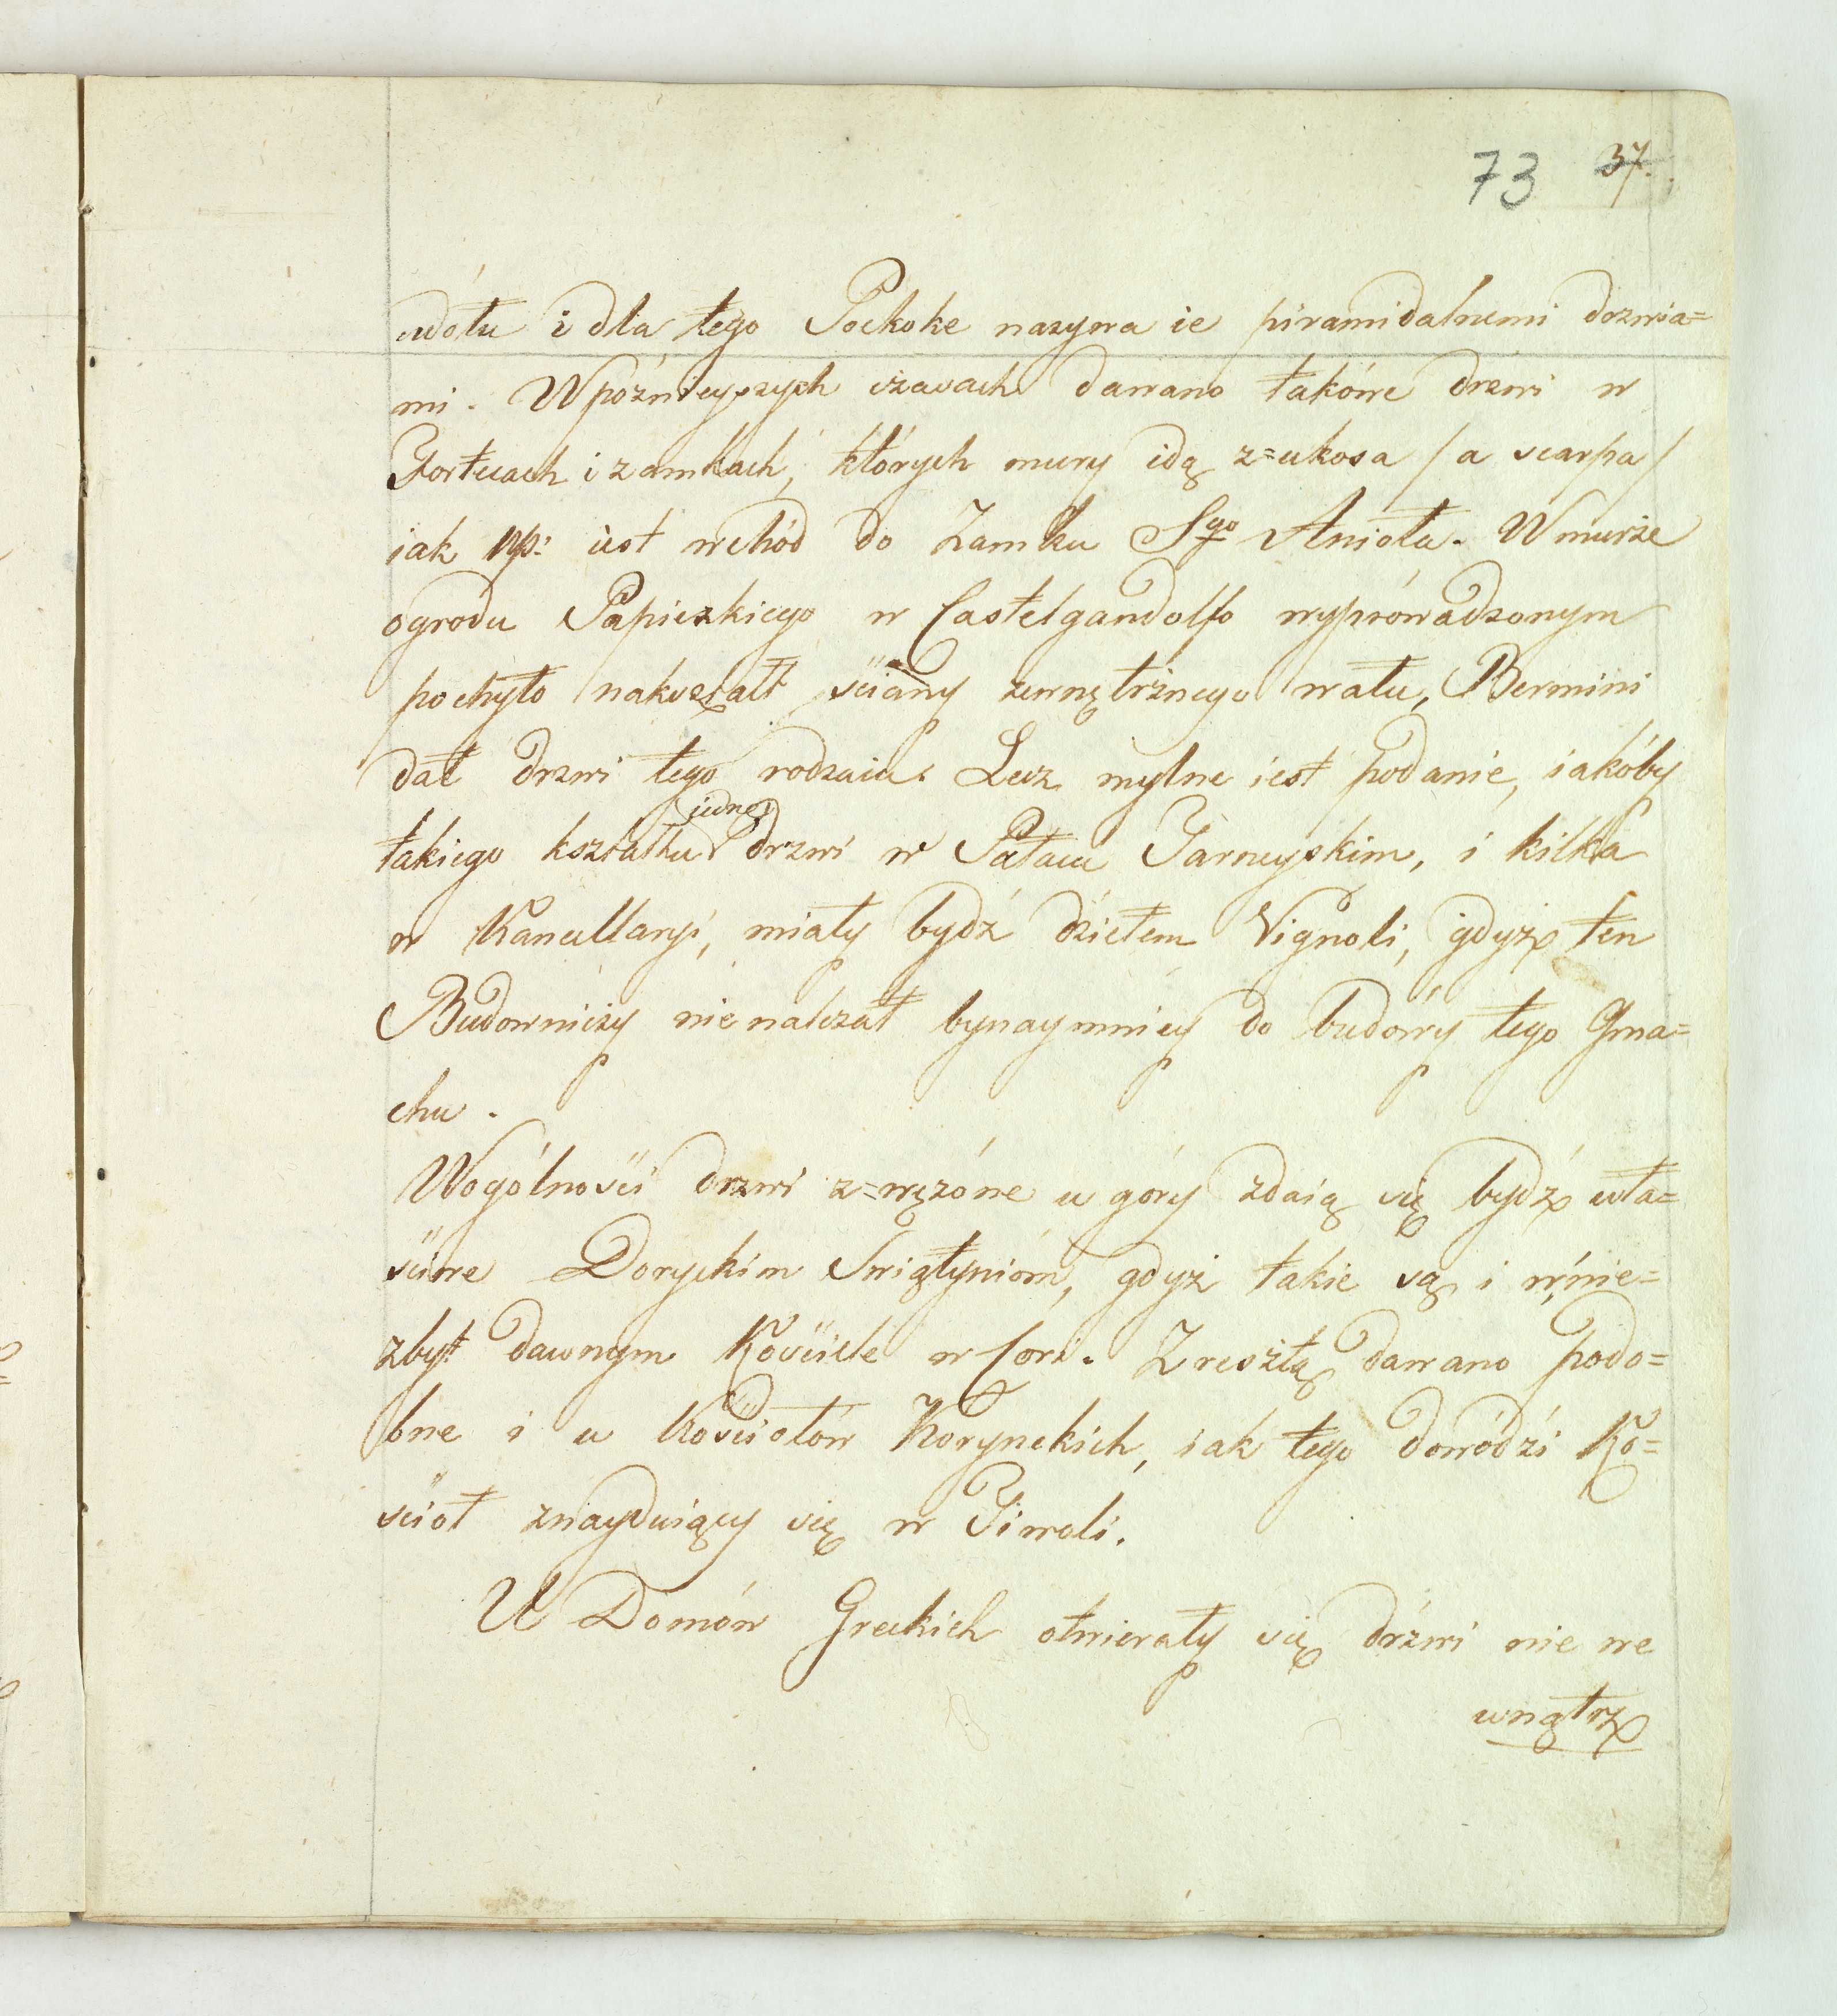 73 37.
udołu i dla tego Pockoke nazywa ie piramidalnemi drzwia=
mi. Wpóźnieyszych czasach dawano takowe drzwi w
Fortecach i zamkach, których mury idą z=ukosa /a scarpa/
iak np: iest wchód do Zamku Sgo Anioła. W murze
ogrodu Papiezkiego w Castelgandolfo wyprowadzonym
pochyło nakształt ściany zewnętrznego wału, Bernini
dał drzwi tego rodzaiu. Lecz mylne iest podanie, iakoby
takiego kształtu iedne drzwi w Pałacu Farneyskim, i kilka
w Kancellaryi, miały bydź dziełem Vignoli, gdyż ten
Budowniczy nienależał bynaymniey do budowy tego Gma=
chu.
Wogólności drzwi z=wężone u góry zdaią się bydź wła=
ściwe Doryckim Świątyniom, gdyż takie są i w nie=
zbyt dawnym Kościele w Cori. Zresztą dawano podo=
bne i u Kościołów Korynckich, iak tego dowodzi Ko=
ścioł znayduiący się w Tiwoli.
U Domów Greckich otwierały się drzwi nie we
wnątrz